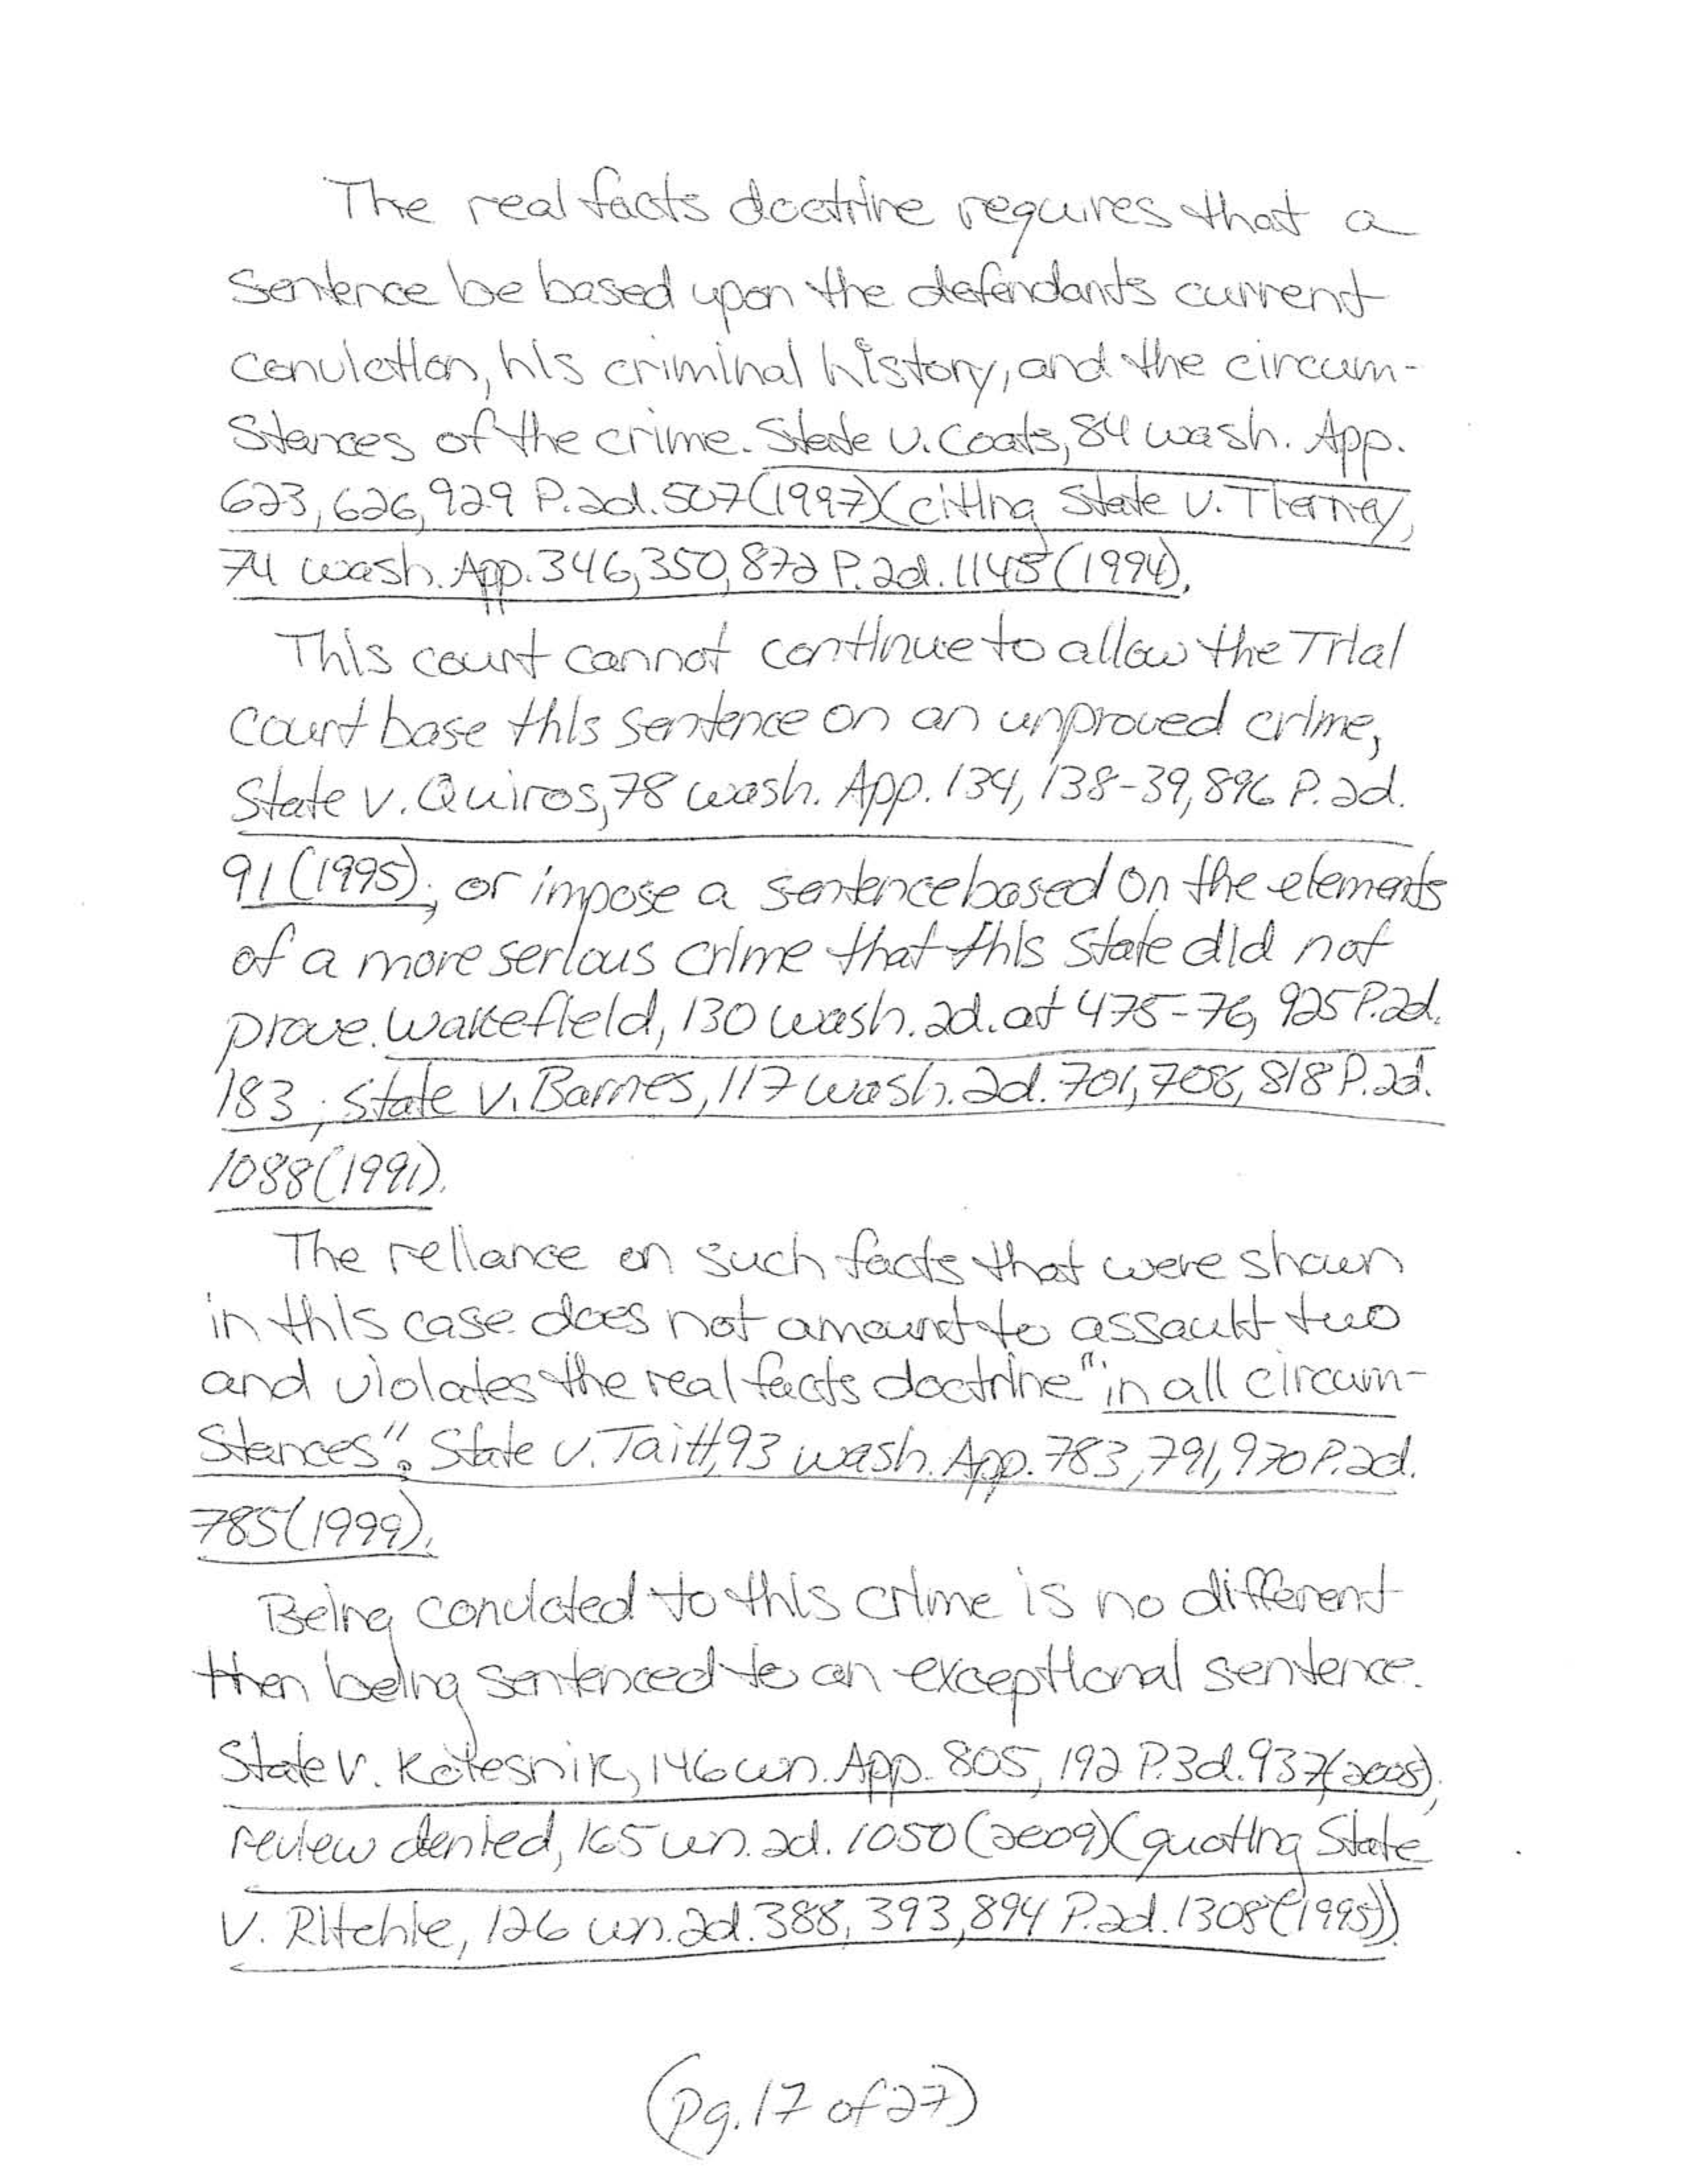 The real facts doctrine requires that a
sentence be based upon the defendants current
conviction, his criminal history, and the circum-
stances of the crime. State v. Coats, 84 wash. App.
623, 626, 929 P.2d. 507 (1997)(citing State v. Tierney,
74 wash. App. 346, 350, 872 P.2d. 1145 (1994).
This court cannot continue to allow the Trial
Court base this sentence on an unproved crime,
State v. Quiros, 78 wash. App. 134, 138-39, 896 P.2d.
91 (1995); or impose a sentence based on the elements
of a more serious crime that this State did not
prove. Wakefield, 130 wash. 2d. at 475-76, 925 P.2d.
183; State v. Barnes, 117 wash. 2d. 701, 708, 818 P.2d.
1088 (1991).
The reliance on such facts that were shown
in this case does not amount to assault two
and violates the real facts doctrine "in all circum-
stances". State v. Taitt, 93 wash. App. 783, 791, 970 P.2d.
785 (1999).
Being convicted to this crime is no different
then being sentenced to an exceptional sentence.
State v. Kolesnik, 146 wn. App. 805, 192 P.3d. 937 (2008),
review denied, 165 wn. 2d. 1050 (2009)(quoting State
v. Ritchie, 126 wn. 2d. 388, 393, 894 P.2d. 1308 (1995)).
(pg. 17 of 27)